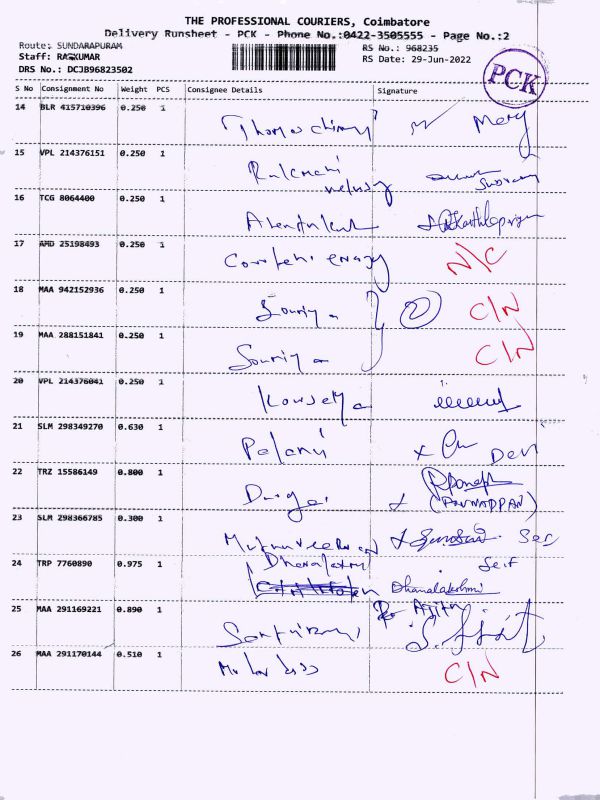 THE PROFESSIONAL COURIERS, Coimbatore
Delivery Runsheet - PCK - Phone No.:0422-3505555 - Page No.:2
Route: SUNDARAPURAM
RS No.: 968235
Staff: RAJKUMAR
RS Date: 29-Jun-2022
DRS No.: DCJB96823502
PCK
S No Consignment No Weight PCS Consignee Details Signature
14 BLR 415710396 0.250 1 Mary
15 VPL 214376151 0.250 1
16 TCG 8064400 0.250 1
17 AMD 25198493 0.250 1 N/C
18 MAA 942152936 0.250 1 Souriya 2 C/N
19 MAA 288151841 0.250 1 Souriya C/N
20 VPL 214376041 0.250 1 Kowselya
21 SLM 298349270 0.630 1 Palani Devi
22 TRZ 15586149 0.800 1 Durga (PONNAPPAN)
23 SLM 298366785 0.300 1
24 TRP 7760890 0.975 1 Dhanalaxmi Self
Dhanalakshmi
25 MAA 291169221 0.890 1
26 MAA 291170144 0.510 1 C/N